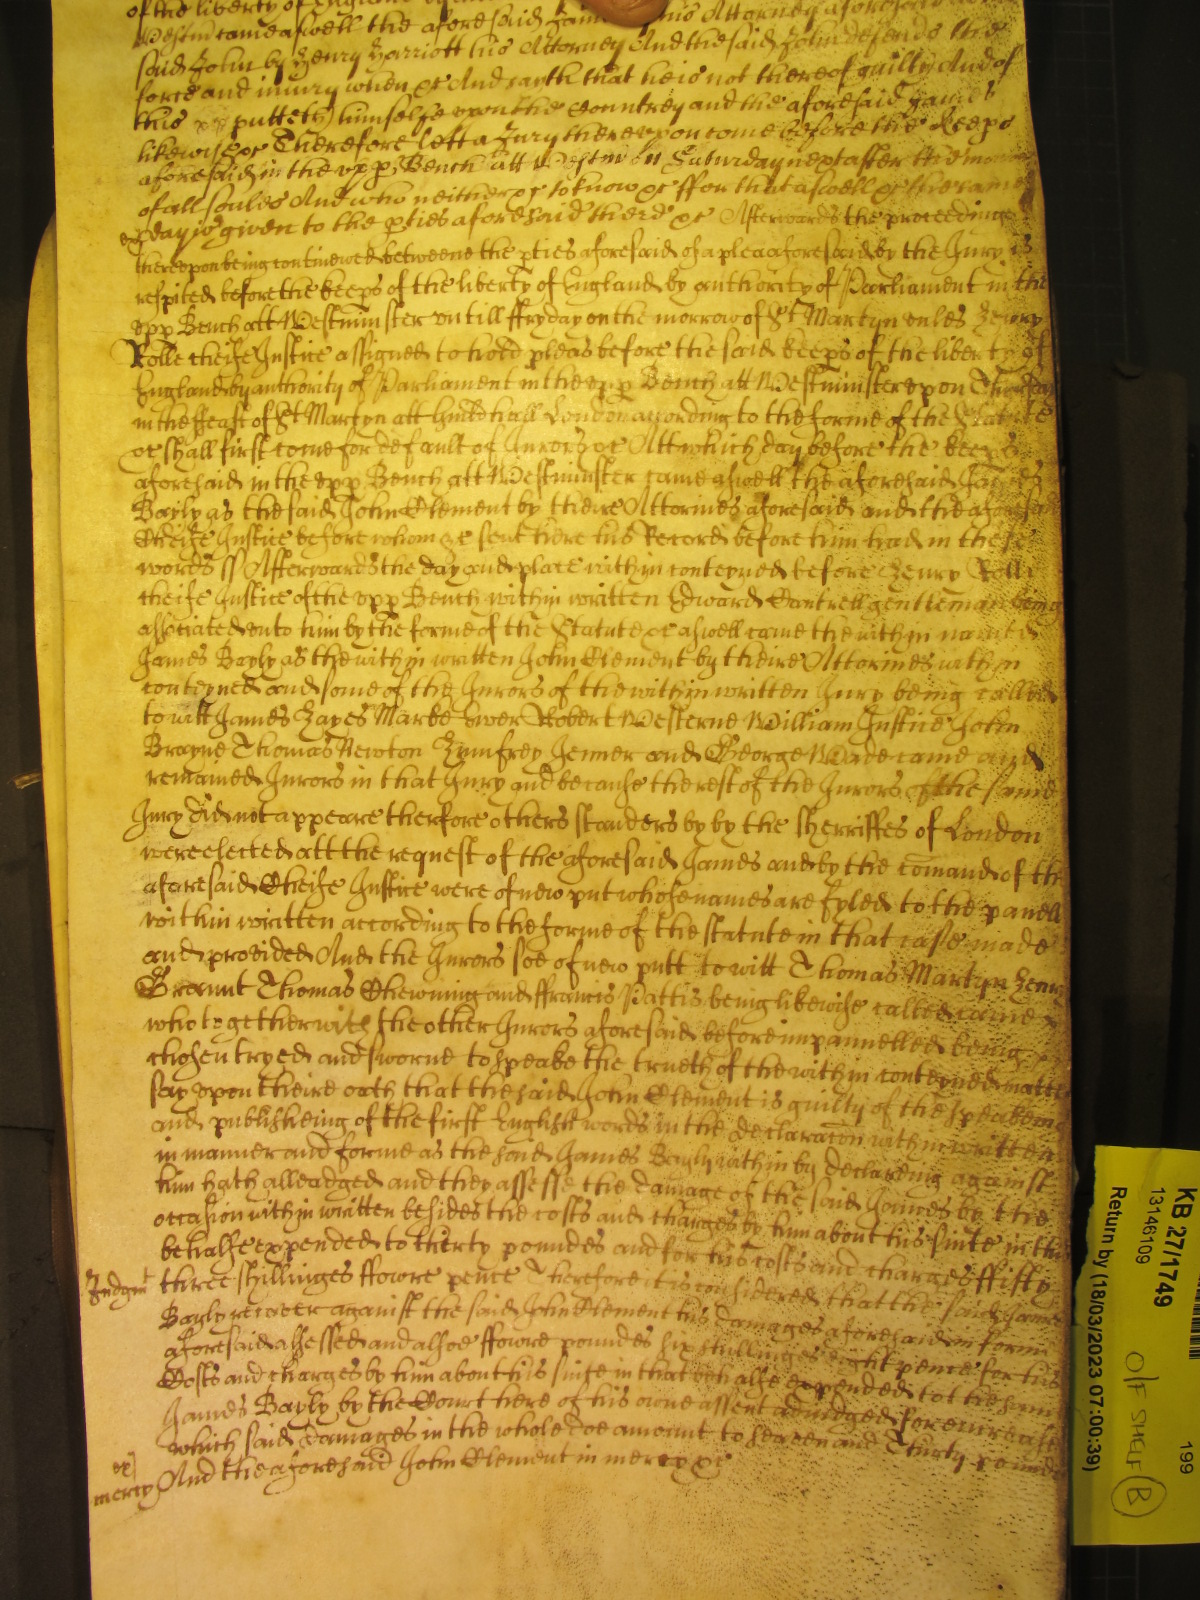 of the liberty of England
Westm came aswell the aforesaid James his Attorney aforesaid
said John by Henry Harriott his Attorney And the said John defends the
force and injury when &c And sayth that he is not thereof guilty And of
this putteth himselfe upon the Countrey and the aforesaid James
likewise &c Therefore lett a Jury thereupon come before the Keeps
aforesaid in the upp Bench att Westm on Saturday next after the morrow
of all soules And who neither &c to know &c ffor that aswell &c the same
day is given to the pties aforesaid there &c Afterwards the proceedings
thereupon being continewed betweene the pties aforesaid of a plea aforesaid by the Jury is
respited before the keeps of the liberty of England by authority of Parliament in the
upp Bench att Westminster untill ffryday on the morrow of St Martyn unles Henry
Rolle cheife Justice assigned to hold pleas before the said keeps of the liberty of
England by authority of Parliament in the upp Bench att Westminster upon Thursday
in the ffeast of St Martyn att Guildhall London according to the forme of the Statute
&c shall first come for default of Jurors &c Att which day before the keeps
aforesaid in the upp Bench att Westminster came aswell the aforesaid James
Bayly as the said John Clement by theire Attornies aforesaid and the aforesaid
Cheife Justice before whom &c sent here his Record before him had in these
words ss Afterwards the day and place within conteyned before Henry Rolle
cheife Justice of the upp Bench within written Edward Cantrell gentleman being
associated unto him by the forme of the Statute &c aswell came the within named
James Bayly as the within written John Clement by theire Attornies within
conteyned and some of the Jurors of the within written Jury being called
to witt James Hayes Marke Ewer Robert Westerne William Justice John
Brayne Thomas Newton Humfrey Jenner and George Wade came and
remained Jurors in that Jury and because the rest of the Jurors of the same
Jury did not appeare therfore others standers by by the sherriffes of London
were elected att the request of the aforesaid James and by the comand of the
aforesaid Cheife Justice were of new put whose names are fyled to the panell
within written according to the forme of the statute in that case made
and provided And the Jurors soe of new putt to witt Thomas Martyn Henry
Braunt Thomas Chewning and ffrancis Pattis being likewise called came
who together with the other Jurors aforesaid before impannelled being
chosen tryed and sworne to speake the trueth of the within conteyned matter
say upon theire oath that the said John Clement is guilty of the speakeing
and publisheing of the first English words in the declaracon within written
in manner and forme as the said James Bayly within by declareing against
him hath alleadged and they assesse the damage of the said James by the
occasion within written besides the costs and charges by him about his suite in this
behalfe expended to therty poundes and for his costs and charges ffifty
Judgmt three shillinges ffowre pence Therefore it is considered that the said James
Bayly recover against the said John Clement his damages aforesaid in forme
aforesaid assessed and alsoe ffowre poundes six shillinges eight pence for his
Costs and charges by him about his suite in that behalfe expended to the same
James Bayly by the Court here of his owne assent adiudged for encrease
which said damages in the whole doe amount to seaven and Thirty pounds
mercy And the aforesaid John Clement in mercy &c
KB 27/1749
13146109
199
Return by (18/03/2023 07:00:39)
O/F SHELF B